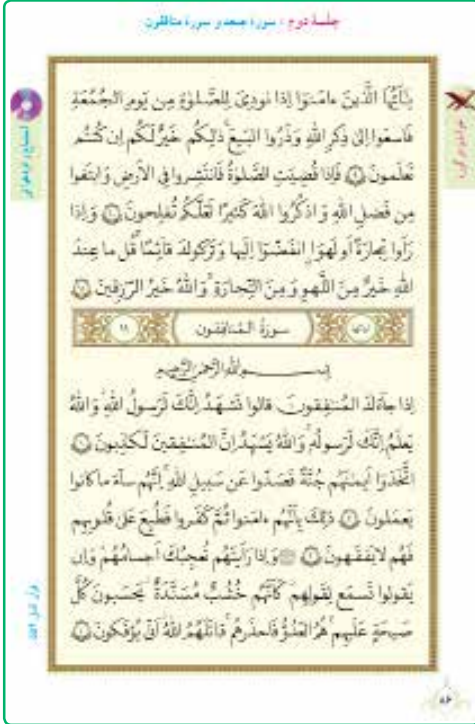 جلسهٔ دوم : سورهٔ جمعه و سورهٔ منافقون
يٰأَيُّهَا الَّذينَ ءامَنوا إِذا نودِيَ لِلصَّلوٰةِ مِن يَومِ الجُمُعَةِ
فَاسعَوا إِلىٰ ذِكرِ اللّٰهِ وَذَرُوا البَيعَ ذٰلِكُم خَيرٌ لَكُم إِن كُنتُم
تَعلَمونَ ۹ فَإِذا قُضِيَتِ الصَّلوٰةُ فَانتَشِروا فِي الأَرضِ وَابتَغوا
مِن فَضلِ اللّٰهِ وَاذكُرُوا اللّٰهَ كَثيرًا لَعَلَّكُم تُفلِحونَ ۱۰ وَإِذا
رَأَوا تِجارَةً أَو لَهوًا انفَضّوا إِلَيها وَتَرَكوكَ قائِمًا قُل ما عِندَ
اللّٰهِ خَيرٌ مِنَ اللَّهوِ وَمِنَ التِّجارَةِ وَاللّٰهُ خَيرُ الرّٰزِقينَ ۱۱
سورةُ المُنافِقون ۱۱
بِسمِ اللّٰهِ الرَّحمٰنِ الرَّحيمِ
إِذا جاءَكَ المُنٰفِقونَ قالوا نَشهَدُ إِنَّكَ لَرَسولُ اللّٰهِ وَاللّٰهُ
يَعلَمُ إِنَّكَ لَرَسولُهُ وَاللّٰهُ يَشهَدُ إِنَّ المُنٰفِقينَ لَكٰذِبونَ ۱
اتَّخَذوا أَيمٰنَهُم جُنَّةً فَصَدّوا عَن سَبيلِ اللّٰهِ إِنَّهُم ساءَ ما كانوا
يَعمَلونَ ۲ ذٰلِكَ بِأَنَّهُم ءامَنوا ثُمَّ كَفَروا فَطُبِعَ عَلىٰ قُلوبِهِم
فَهُم لا يَفقَهونَ ۳ ۞ وَإِذا رَأَيتَهُم تُعجِبُكَ أَجسامُهُم وَإِن
يَقولوا تَسمَع لِقَولِهِم كَأَنَّهُم خُشُبٌ مُسَنَّدَةٌ يَحسَبونَ كُلَّ
صَيحَةٍ عَلَيهِم هُمُ العَدُوُّ فَاحذَرهُم قاتَلَهُمُ اللّٰهُ أَنّىٰ يُؤفَكونَ ۴
۸۶